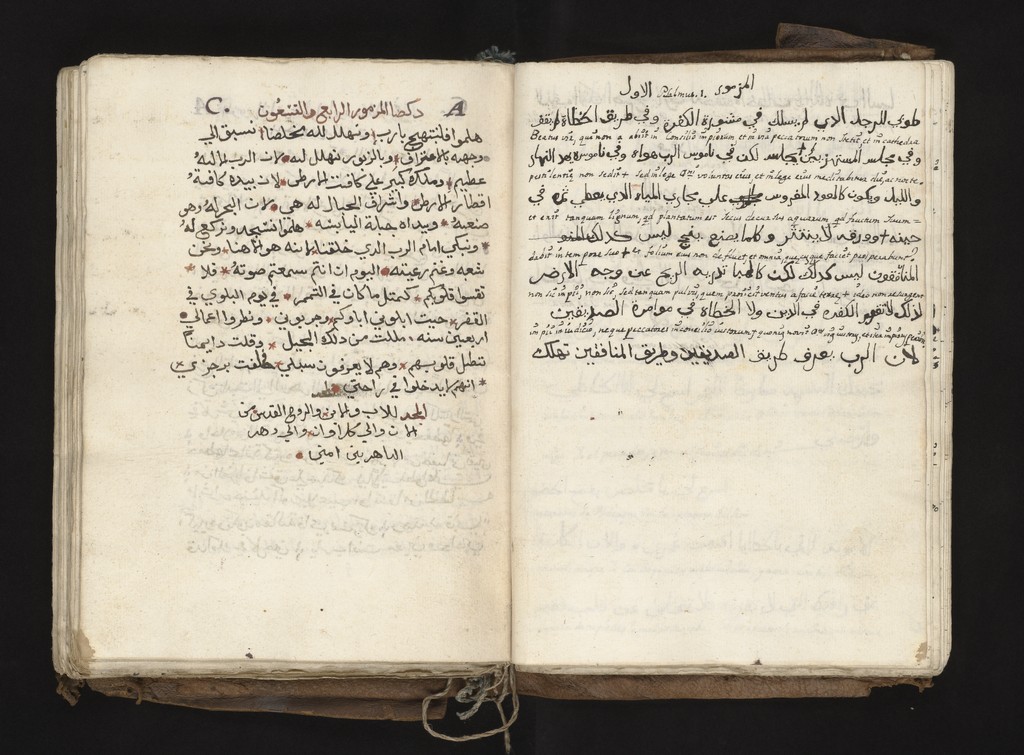 المزمور Psalmus. 1. الاول
طوبى للرجل الذي لم يسلك في مشورة الكفرة وفي طريق الخطاة لم يقف
Beatus vir, qui non abiit in Consilio impiorum et in via peccatorum non stetit, et in cathedra
وفي مجلس المستهزيين لم يجلس لكن في ناموس الرب هواه وفي ناموسه يهد النهار
pestilentiæ non sedit + sed in lege Dni voluntas eius, et in lege eius meditabitur die, ac nocte.
والليل ويكون كالعود المغروس علي مجاري المياه الذي يعطي ثمره في
et erit tanquam lignum, qd plantatum est secus decursus aquarum, qd fructum suum=
حينه + وورقه لا ينتثر وكلما يصنع ينجح ليس كذلك
dabit in tempore suo + et folium eius non defluet, et omnia, quæcunque faciet prosperabunt
المنافقون ليس كذلك لكن كالهبا تذريه الريح عن وجه الارض
non sic impii, non sic, sed tanquam pulvis, quem proiicit ventus a facie terræ + ideo non resurgent
لذلك لا تقوم الكفره في الدين ولا الخطاة في موامرة الصديقين
impii in iudicio, neque peccatores in consilio iustorum + quoniam novit Dns viam iustorum, et iter impiorum peribit
لان الرب يعرف طريق الصديقين وطريق المنافقين تهلك
C. المزمور الرابع والتسعون A
هلموا فلنبتهج بارب ونهلل لله مخلصنا نسبق الي
وجهه بالاعتراف وبالزبور نهلل له لان الرب لله
عظيم وملك كبير علي كافت الارض لان بيده كافة
اقطار الارض واشرف الجبال له هي لان البحر له وهو
صنعه وبيداه جبلة اليابسه هلموا نسجد ونركع له
ونبكي امام الرب الذي خلقنا لانه هو الهنا ونحن
شعبه وغنم رعيته اليوم ان انتم سمعتم صوته فلا
تقسوا قلوبكم كمثل ما كان في التمرمر في يوم البلوي في
القفر حيت ابلوني اباوكم وجربوني ونظروا اعمالي
اربعين سنه مللت من ذلك الجيل وقلت دايما
تظل قلوبهم وهم لا يعرفون سبيلي فحلفت برجزي
انهم لا يدخلوا في راحتي
المجد للاب والابن والروح القدس من
الان والي كل اوان والي دهر
الداهرين امين